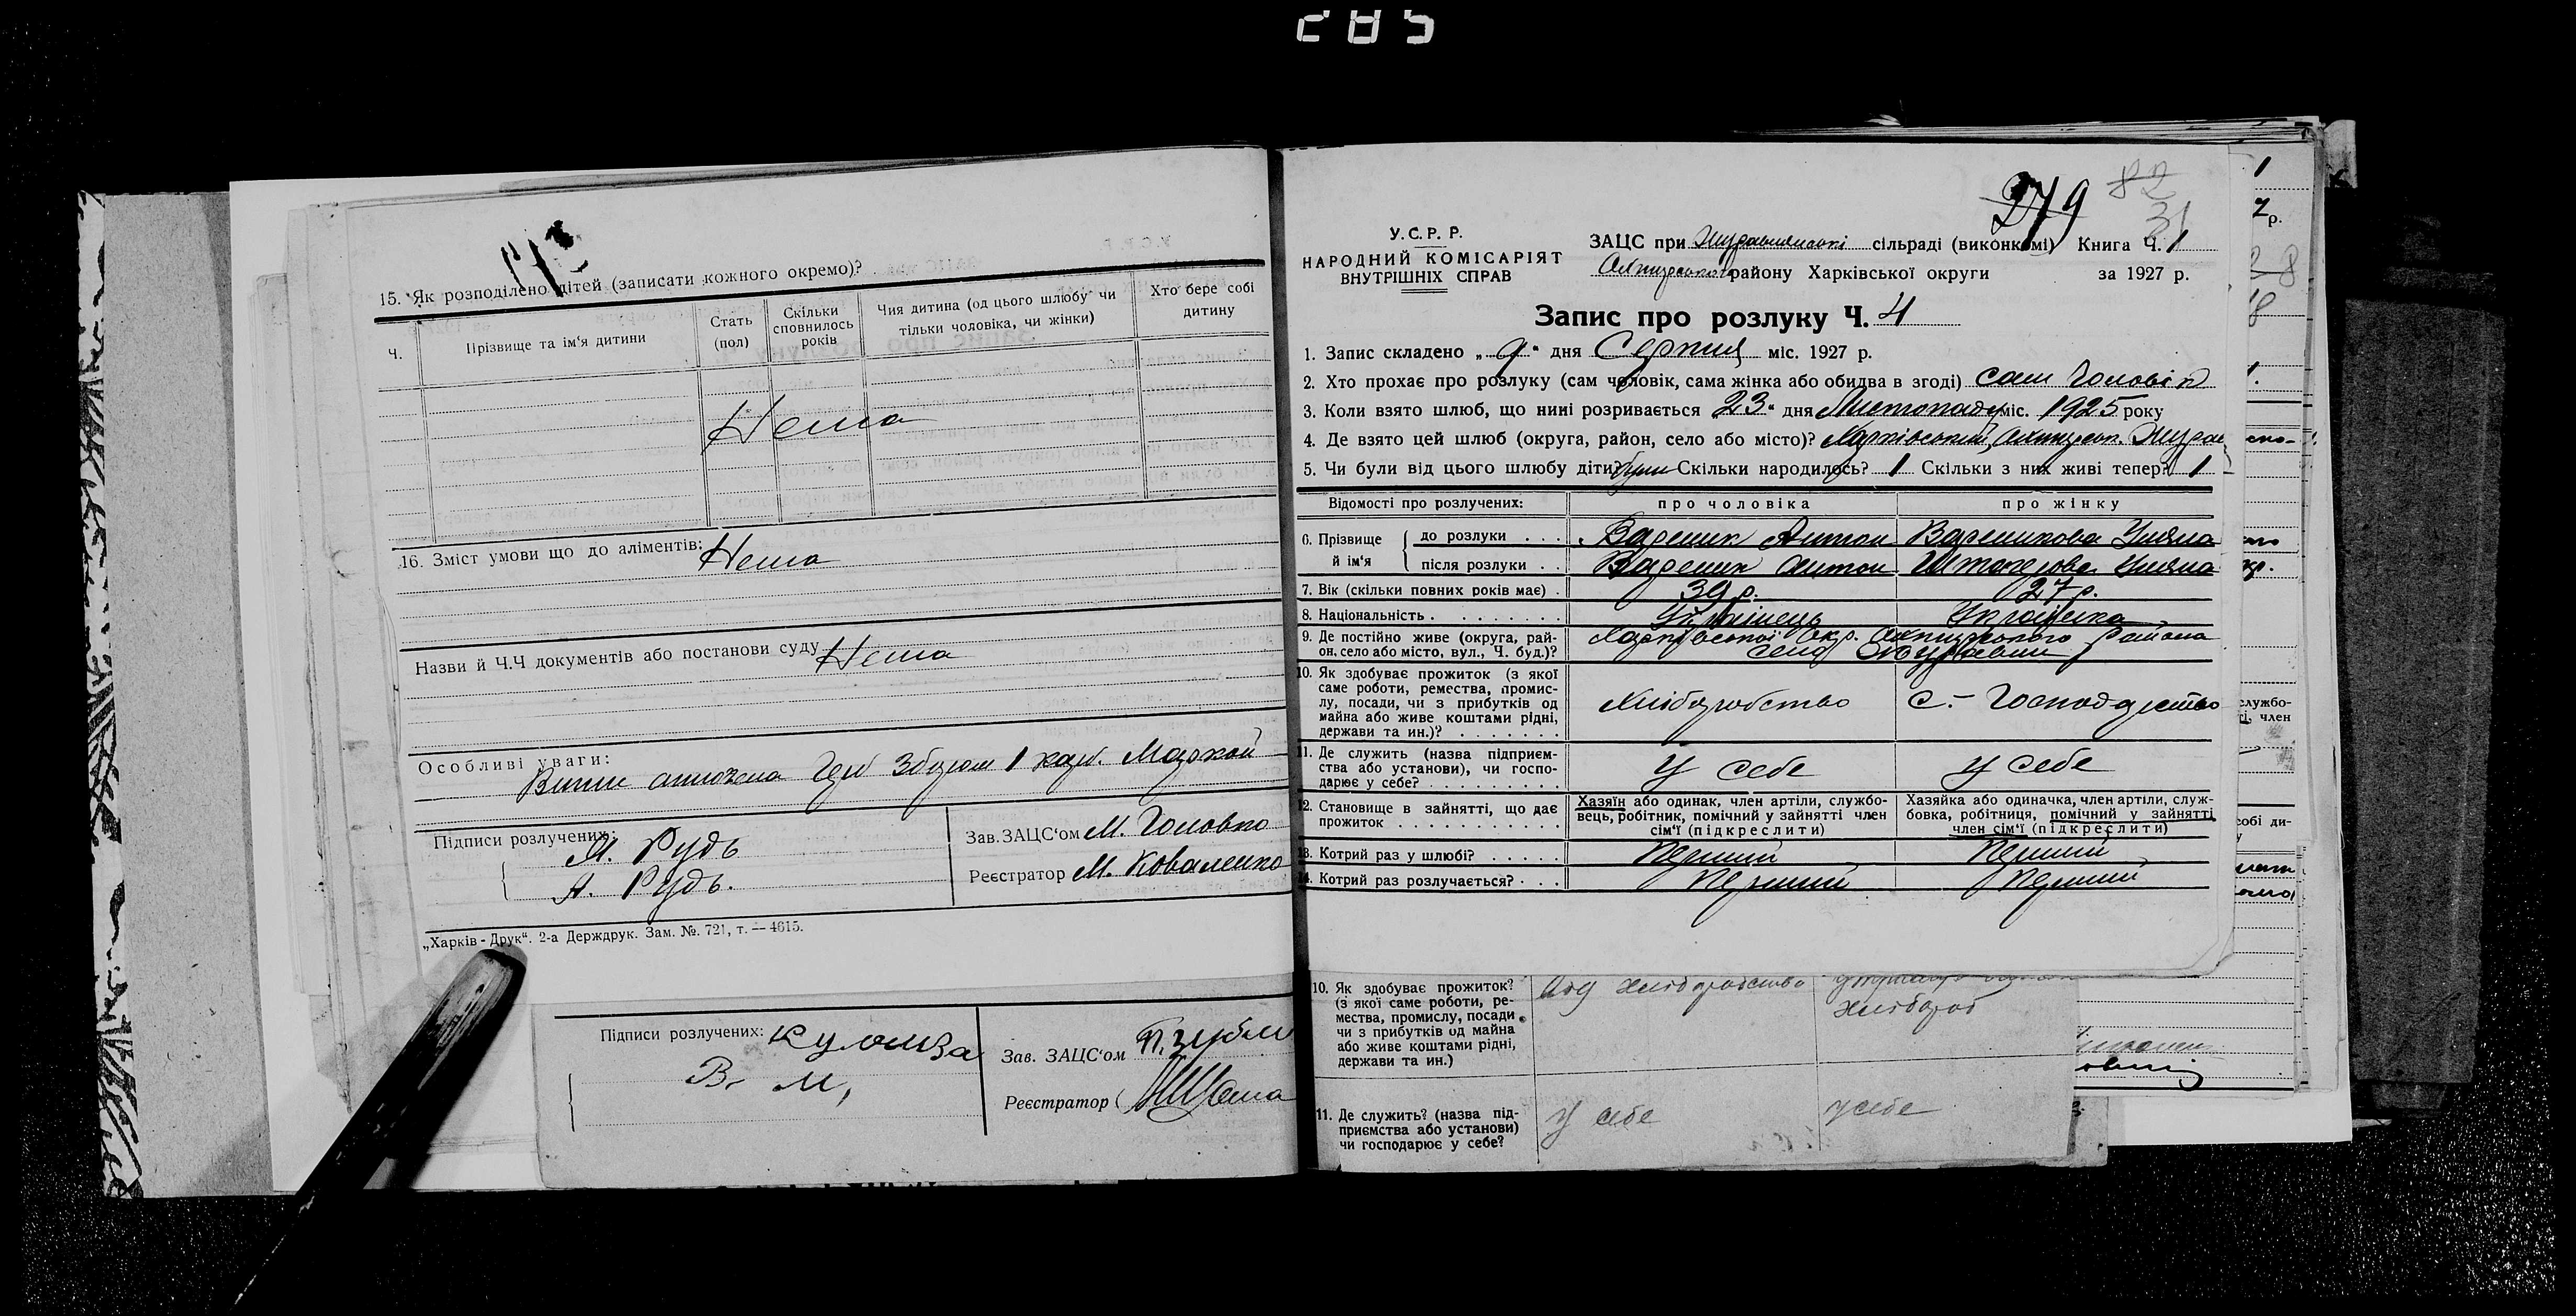 285
15. Як розподілено дітей (записати кожного окремо)?
Ч.
Прізвище та ім'я дитини
Стать (пол)
Скільки сповнилось років
Чия дитина (од цього шлюбу чи тільки чоловіка, чи жінки)
Хто бере собі дитину
Нема
16. Зміст умови що до аліментів: Нема
Назви й Ч.Ч документів або постанови суду Нема
Особливі уваги:
збором 1 карб. Маркой
Підписи розлучених:
М. Рудь
А. Рудь.
Зав. ЗАЦС'ом М. Головко
Реєстратор М. Коваленко
„Харків-Друк“. 2-а Держдрук. Зам. №. 721, т. — 4615.
Підписи розлучених:
В. М,
Зав. ЗАЦС'ом
Реєстратор
279
82
31
У.С.Р.Р.
НАРОДНИЙ КОМІСАРІЯТ
ВНУТРІШНІХ СПРАВ
ЗАЦС при сільраді (виконкомі) Книга Ч. 1
району Харківської округи за 1927 р.
Запис про розлуку Ч. 4
1. Запис складено „9“ дня Серпня міс. 1927 р.
2. Хто прохає про розлуку (сам чоловік, сама жінка або обидва в згоді) сам чоловік
3. Коли взято шлюб, що нині розривається 23“ дня Листопаду міс. 1925 року
4. Де взято цей шлюб (округа, район, село або місто)? Харківський,
5. Чи були від цього шлюбу діти? були Скільки народилось? 1 Скільки з них живі тепер? 1
Відомості про розлучених:
про чоловіка
про жінку
6. Прізвище й ім'я
до розлуки . . . Вареник Антон Вареникова Уляна
після розлуки . . Вареник Антон Уляна
7. Вік (скільки повних років має) . 39 р. 27 р.
8. Національність . . . . . . . . Українець Українка
9. Де постійно живе (округа, район, село або місто, вул., Ч. буд.)? Харківської Окр. Района
село Журавни
10. Як здобуває прожиток (з якої
саме роботи, ремества, промис-
лу, посади, чи з прибутків од
майна або живе коштами рідні,
держави та ин.)? . . . . . . .
Хліборобство
с.-господарство
11. Де служить (назва підприєм-
ства або установи), чи госпо-
дарює у себе? . . . . . . . . .
у себе
у себе
12. Становище в зайнятті, що дає
прожиток . . . . . . . . . . .
Хазяїн або одинак, член артіли, службо-
вець, робітник, помічний у зайнятті член
сім'ї (підкреслити)
Хазяйка або одиначка, член артіли, служ-
бовка, робітниця, помічний у зайнятті
член сім'ї (підкреслити)
13. Котрий раз у шлюбі? . . . . . Перший Перший
14. Котрий раз розлучається? . . . Перший Перший
10. Як здобуває прожиток?
(з якої саме роботи, ре-
мества, промислу, посади
чи з прибутків од майна
або живе коштами рідні,
держави та ин.)
хліборобство
хлібороб
11. Де служить? (назва під-
приємства або установи)
чи господарює у себе?
У себе
у себе